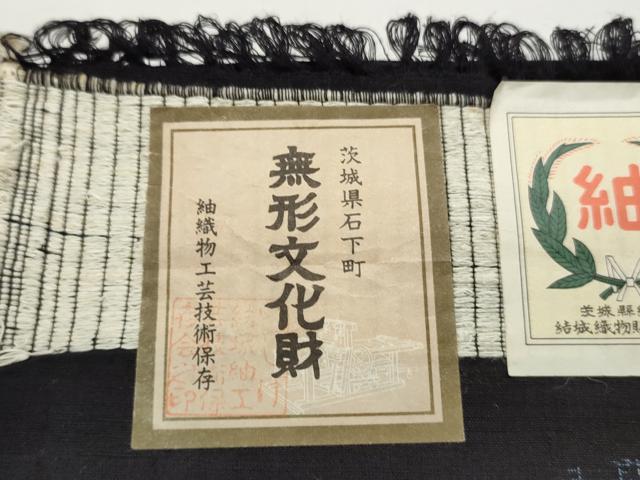 茨城県石下町
無形文化財
紬織物工芸技術保存
紬
茨城縣
結城織物